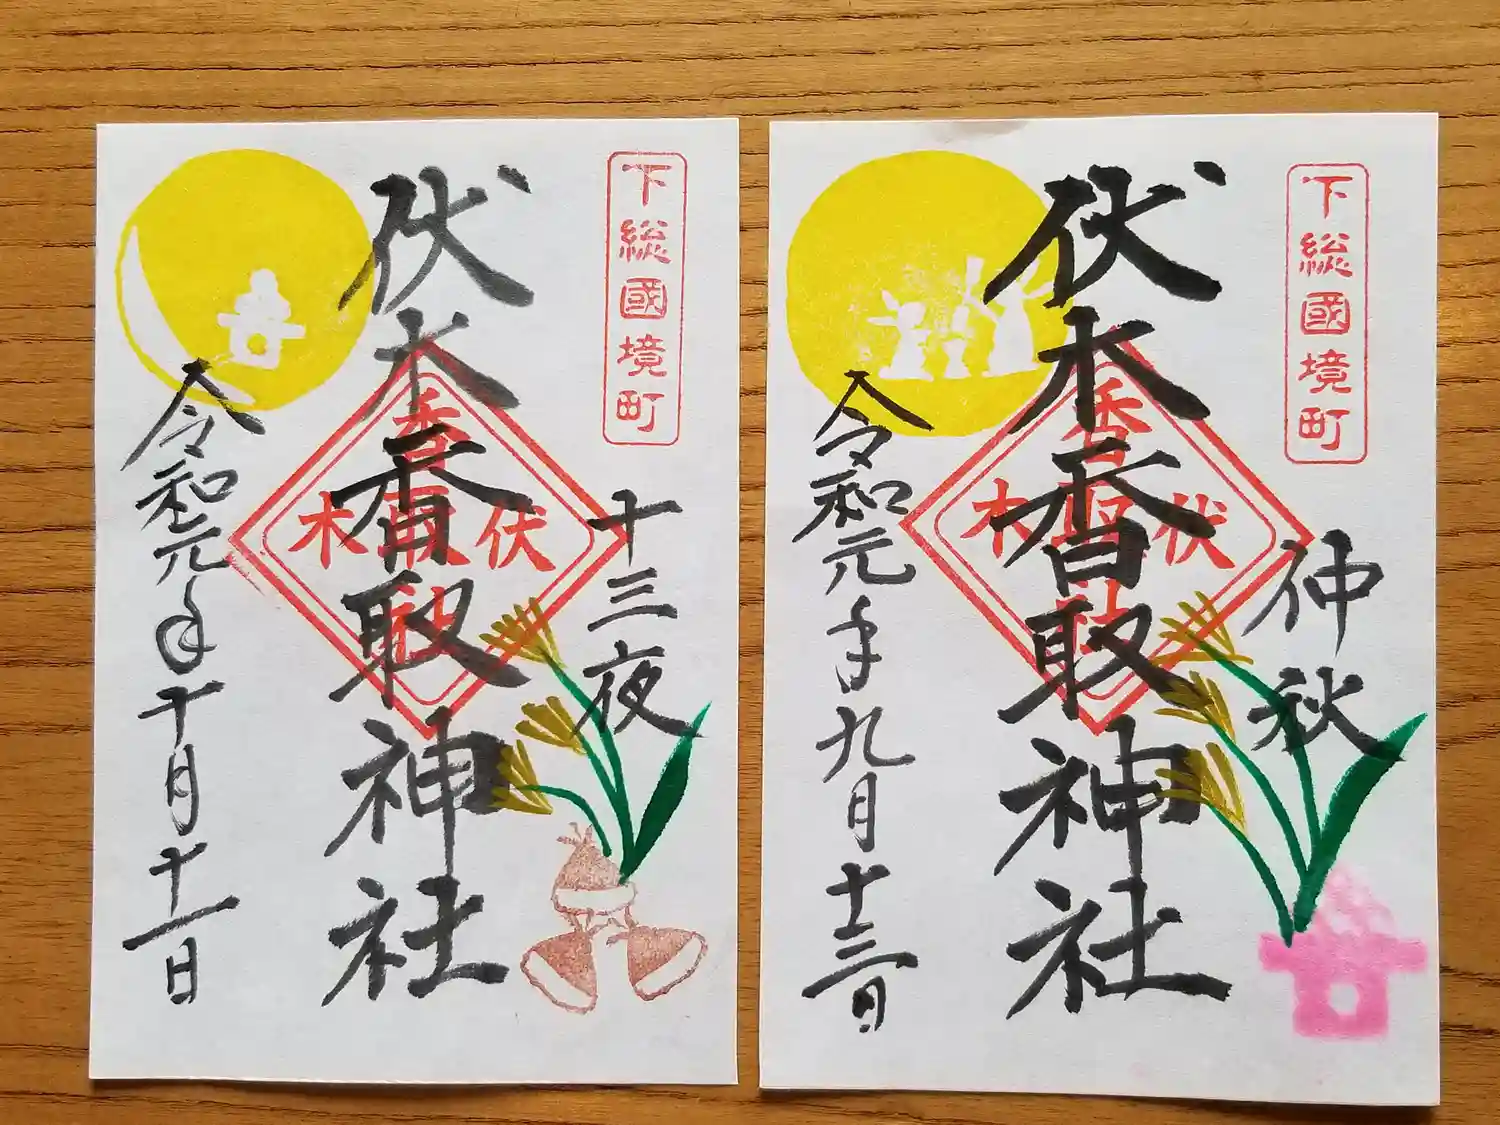 下総國境町
十三夜
伏木香取神社
伏木
香取
令和元年十月十一日
下総國境町
仲秋
伏木香取神社
伏木
香取
令和元年九月十三日